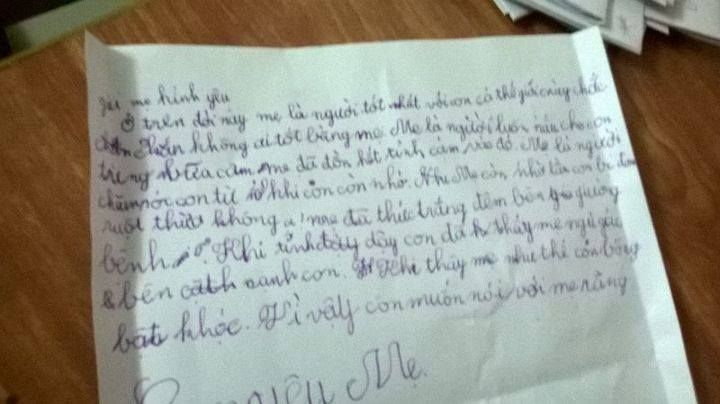 mẹ kính yêu
Ở trên đời này mẹ là người tốt nhất với con cả thế giới này chắc
chắn không ai tốt bằng mẹ. Mẹ là người luôn nấu cho con
từng bữa cơm, mẹ đã dồn hết tình cảm vào đó. Mẹ là người
chăm sóc con từ khi còn còn nhỏ. Mẹ còn nhớ lần con bị
ruột thừa không ạ! mẹ đã thức trắng đêm bên giường
bệnh. Khi tỉnh dậy con đã thấy mẹ ngủ
bên cạnh con. Khi thấy mẹ như thế con bỗng
bật khóc. Vì vậy con muốn nói với mẹ rằng
yêu Mẹ.